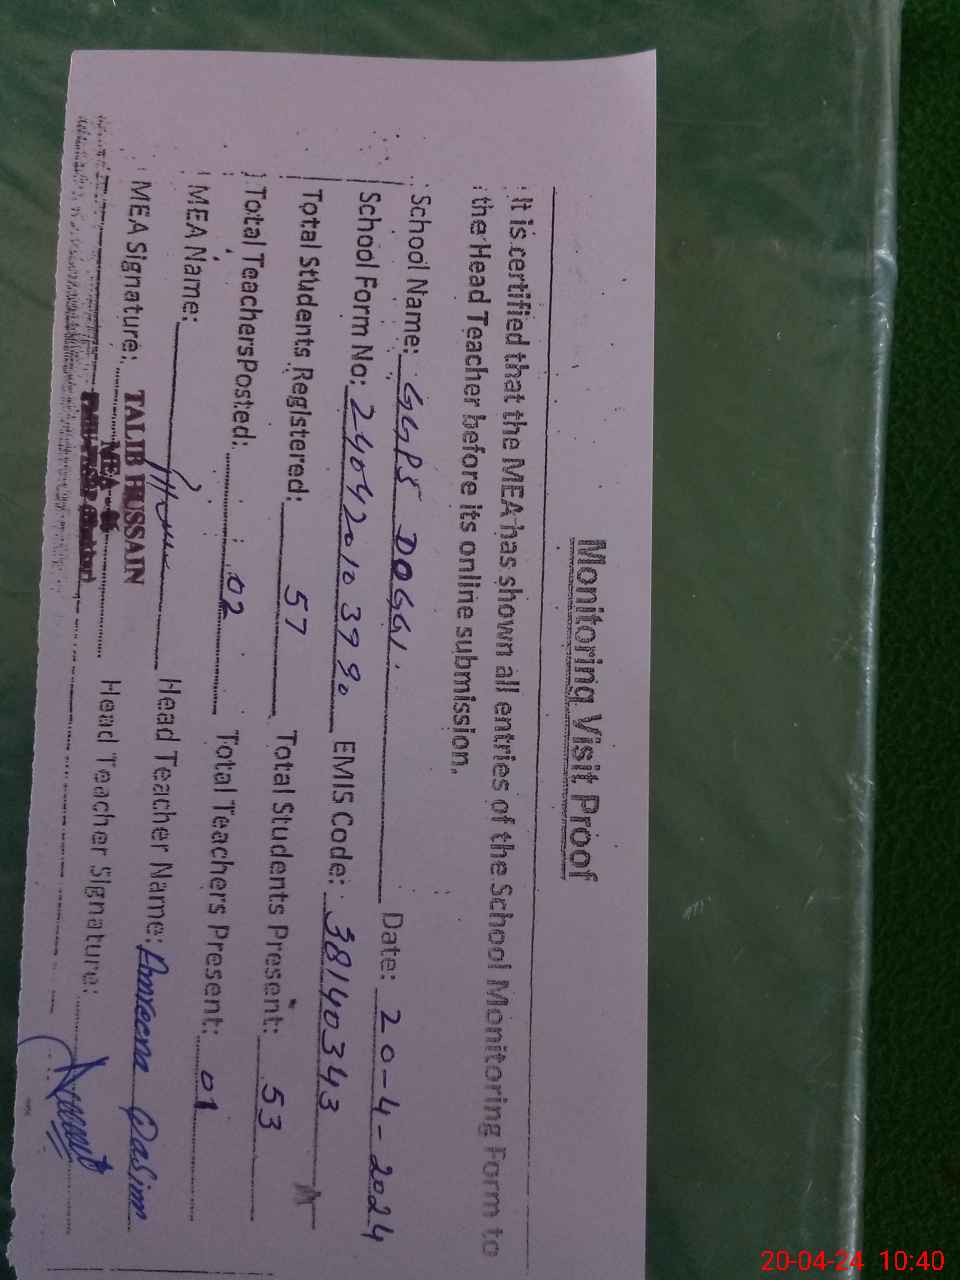 Monitoring Visit Proof
It is certified that the MEA has shown all entries of the School Monitoring Form to
the Head Teacher before its online submission.
School Name: GGPS DOGGI. Date: 20-4-2024
School Form No: 240420103990 EMIS Code: 38140343
Total Students Registered: 57 Total Students Present: 53
Total Teachers Posted: 02 Total Teachers Present: 01
MEA Name: Head Teacher Name: Qasim
MEA Signature: TALIB HUSSAIN Head Teacher Signature:
MEA - 06
20-04-24 10:40